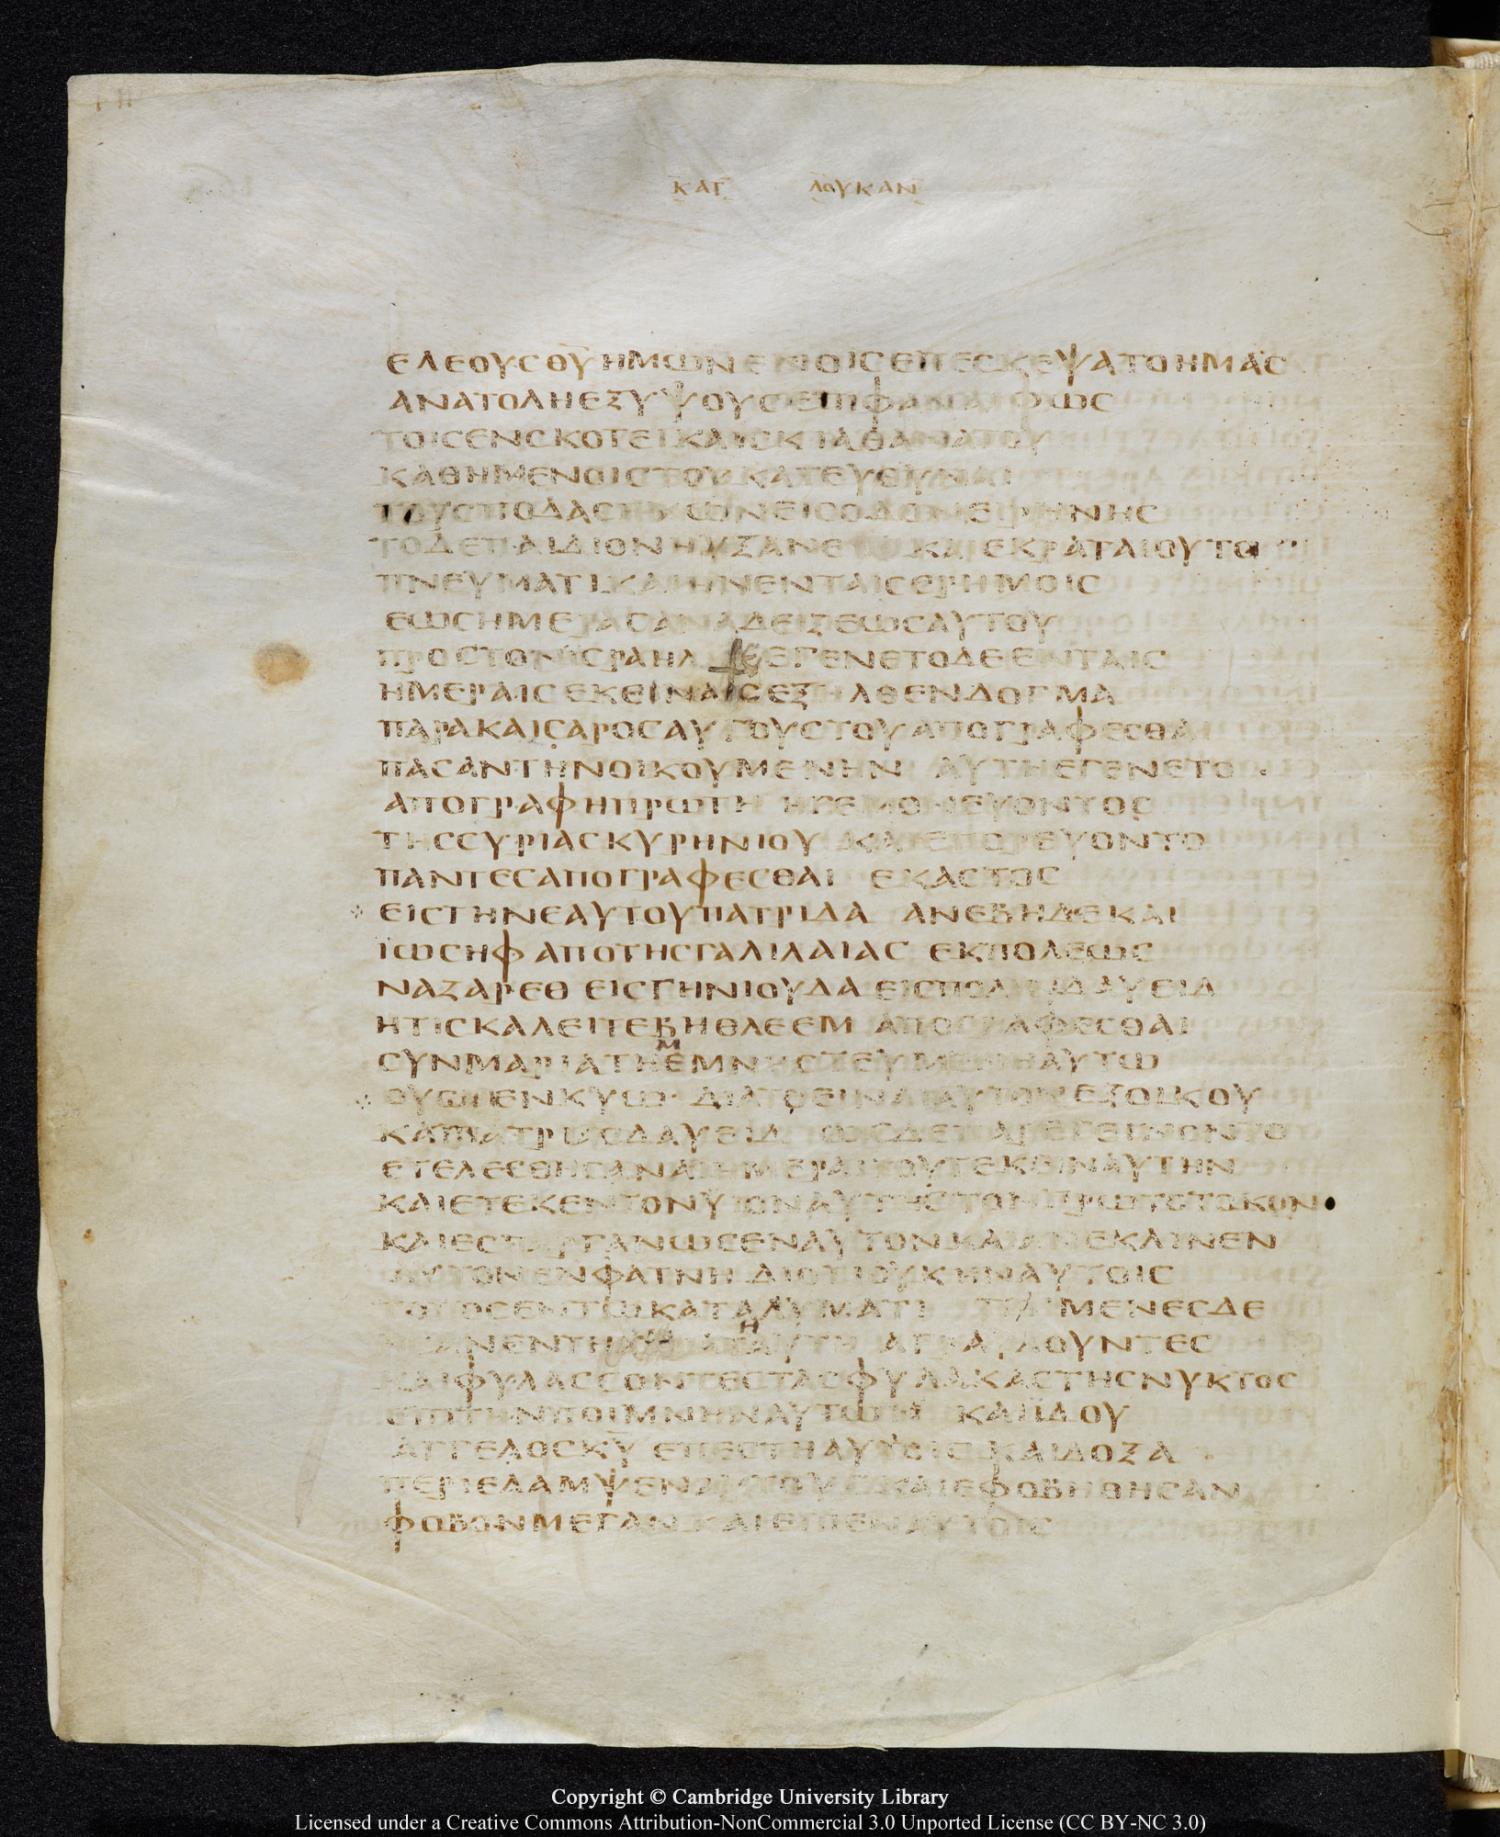 ΚΑΤ ΛΟΥΚΑΝ
ΕΛΕΟΥΣ ΘΥ ΗΜΩΝ ΕΝ ΟΙΣ ΕΠΕΣΚΕΨΑΤΟ ΗΜΑΣ
ΑΝΑΤΟΛΗ ΕΞ ΥΨΟΥΣ ΕΠΙΦΑΝΑΙ ΦΩΣ
ΤΟΙΣ ΕΝ ΣΚΟΤΕΙ ΚΑΙ ΣΚΙΑ ΘΑΝΑΤΟΥ
ΚΑΘΗΜΕΝΟΙΣ ΤΟΥ ΚΑΤΕΥΘΥΝΑΙ
ΤΟΥΣ ΠΟΔΑΣ ΗΜΩΝ ΕΙΣ ΟΔΟΝ ΕΙΡΗΝΗΣ
ΤΟ ΔΕ ΠΑΙΔΙΟΝ ΗΥΞΑΝΕ ΚΑΙ ΕΚΡΑΤΑΙΟΥΤΟ
ΠΝΕΥΜΑΤΙ ΚΑΙ ΗΝ ΕΝ ΤΑΙΣ ΕΡΗΜΟΙΣ
ΕΩΣ ΗΜΕΡΑΣ ΑΝΑΔΕΙΞΕΩΣ ΑΥΤΟΥ
ΠΡΟΣ ΤΟΝ ΙΣΡΑΗΛ ΕΓΕΝΕΤΟ ΔΕ ΕΝ ΤΑΙΣ
ΗΜΕΡΑΙΣ ΕΚΕΙΝΑΙΣ ΕΞΗΛΘΕΝ ΔΟΓΜΑ
ΠΑΡΑ ΚΑΙΣΑΡΟΣ ΑΥΓΟΥΣΤΟΥ ΑΠΟΓΡΑΦΕΣΘΑΙ
ΠΑΣΑΝ ΤΗΝ ΟΙΚΟΥΜΕΝΗΝ ΑΥΤΗ ΕΓΕΝΕΤΟ
ΑΠΟΓΡΑΦΗ ΠΡΩΤΗ ΗΓΕΜΟΝΕΥΟΝΤΟΣ
ΤΗΣ ΣΥΡΙΑΣ ΚΥΡΗΝΙΟΥ ΚΑΙ ΕΠΟΡΕΥΟΝΤΟ
ΠΑΝΤΕΣ ΑΠΟΓΡΑΦΕΣΘΑΙ ΕΚΑΣΤΟΣ
ΕΙΣ ΤΗΝ ΕΑΥΤΟΥ ΠΑΤΡΙΔΑ ΑΝΕΒΗ ΔΕ ΚΑΙ
ΪΩΣΗΦ ΑΠΟ ΤΗΣ ΓΑΛΙΛΑΙΑΣ ΕΚ ΠΟΛΕΩΣ
ΝΑΖΑΡΕΘ ΕΙΣ ΓΗΝ ΙΟΥΔΑ ΕΙΣ ΠΟΛΙΝ ΔΑΥΕΙΔ
ΗΤΙΣ ΚΑΛΕΙΤΕ ΒΗΘΛΕΕΜ ΑΠΟΓΡΑΦΕΣΘΑΙ
ΣΥΝ ΜΑΡΙΑ ΤΗ ΕΜΝΗΣΤΕΥΜΕΝΗ ΑΥΤΩ
ΟΥΣΗ ΕΝΚΥΩ ΔΙΑ ΤΟ ΕΙΝΑΙ ΑΥΤΟΝ ΕΞ ΟΙΚΟΥ
ΚΑΙ ΠΑΤΡΙΑΣ ΔΑΥΕΙΔ ΩΣ ΔΕ ΠΑΡΕΓΕΙΝΟΝΤΟ
ΕΤΕΛΕΣΘΗΣΑΝ ΑΙ ΗΜΕΡΑΙ ΤΟΥ ΤΕΚΕΙΝ ΑΥΤΗΝ
ΚΑΙ ΕΤΕΚΕΝ ΤΟΝ ΥΙΟΝ ΑΥΤΗΣ ΤΟΝ ΠΡΩΤΟΤΟΚΟΝ
ΚΑΙ ΕΣΠΑΡΓΑΝΩΣΕΝ ΑΥΤΟΝ ΚΑΙ ΑΝΕΚΛΙΝΕΝ
ΑΥΤΟΝ ΕΝ ΦΑΤΝΗ ΔΙΟΤΙ ΟΥΚ ΗΝ ΑΥΤΟΙΣ
ΤΟΠΟΣ ΕΝ ΤΩ ΚΑΤΑΛΥΜΑΤΙ ΠΟΙΜΕΝΕΣ ΔΕ
ΗΣΑΝ ΕΝ ΤΗ ΑΥΤΗ ΑΓΡΑΥΛΟΥΝΤΕΣ
ΚΑΙ ΦΥΛΑΣΣΟΝΤΕΣ ΤΑΣ ΦΥΛΑΚΑΣ ΤΗΣ ΝΥΚΤΟΣ
ΕΠΙ ΤΗΝ ΠΟΙΜΝΗΝ ΑΥΤΩΝ ΚΑΙ ΪΔΟΥ
ΑΓΓΕΛΟΣ ΚΥ ΕΠΕΣΤΗ ΑΥΤΟΙΣ ΚΑΙ ΔΟΞΑ
ΠΕΡΙΕΛΑΜΨΕΝ ΑΥΤΟΥΣ ΚΑΙ ΕΦΟΒΗΘΗΣΑΝ
ΦΟΒΟΝ ΜΕΓΑΝ ΚΑΙ ΕΙΠΕΝ ΑΥΤΟΙΣ
Copyright © Cambridge University Library
Licensed under a Creative Commons Attribution-NonCommercial 3.0 Unported License (CC BY-NC 3.0)